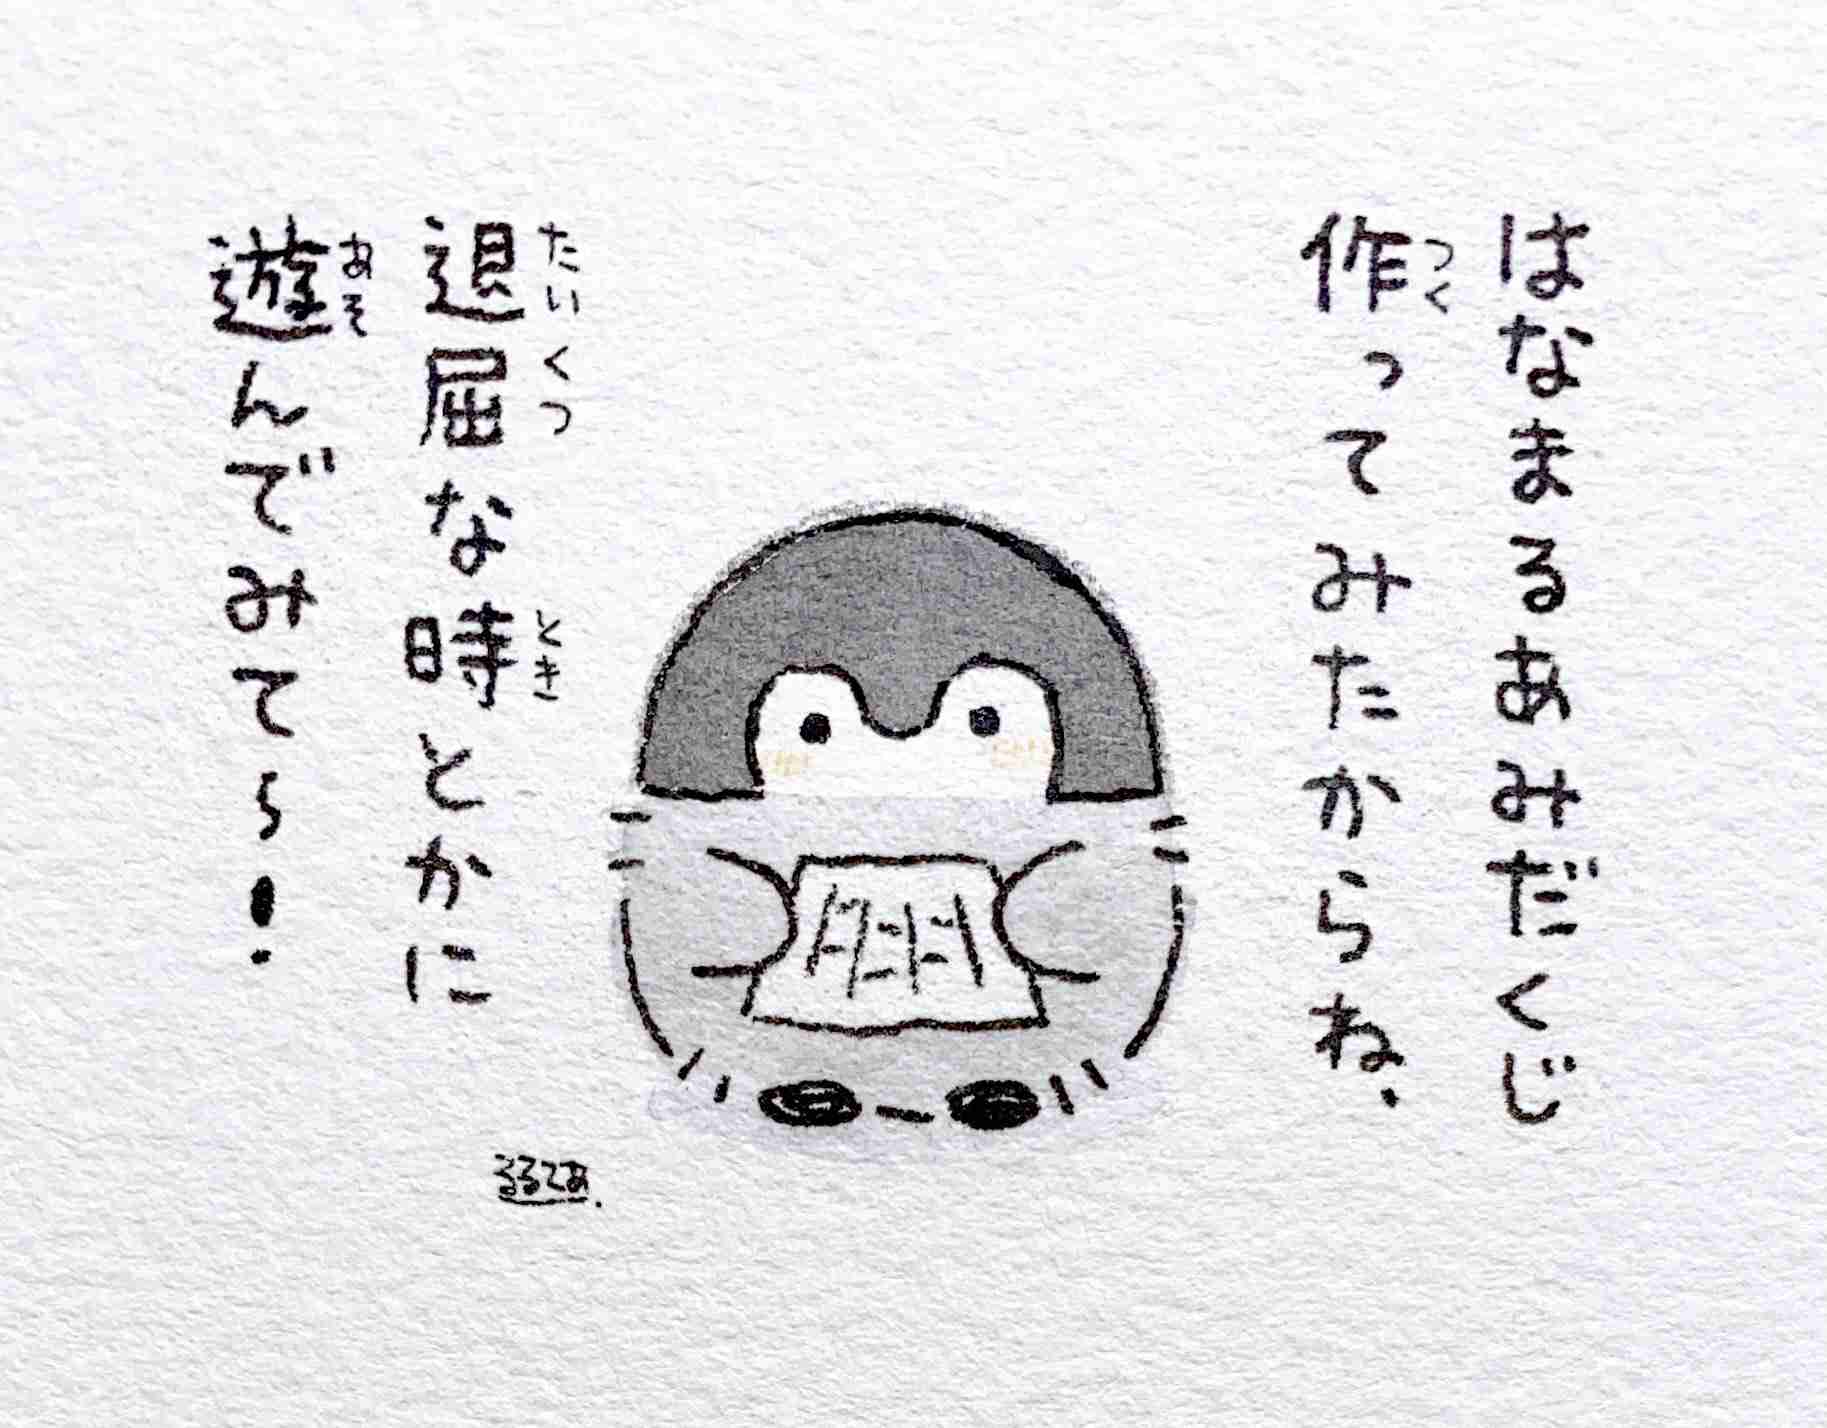 はなまるあみだくじ
作ってみたからね.
退屈な時とかに
遊んでみてら!
つく
たいくつ
とき
あそ
るるてあ.